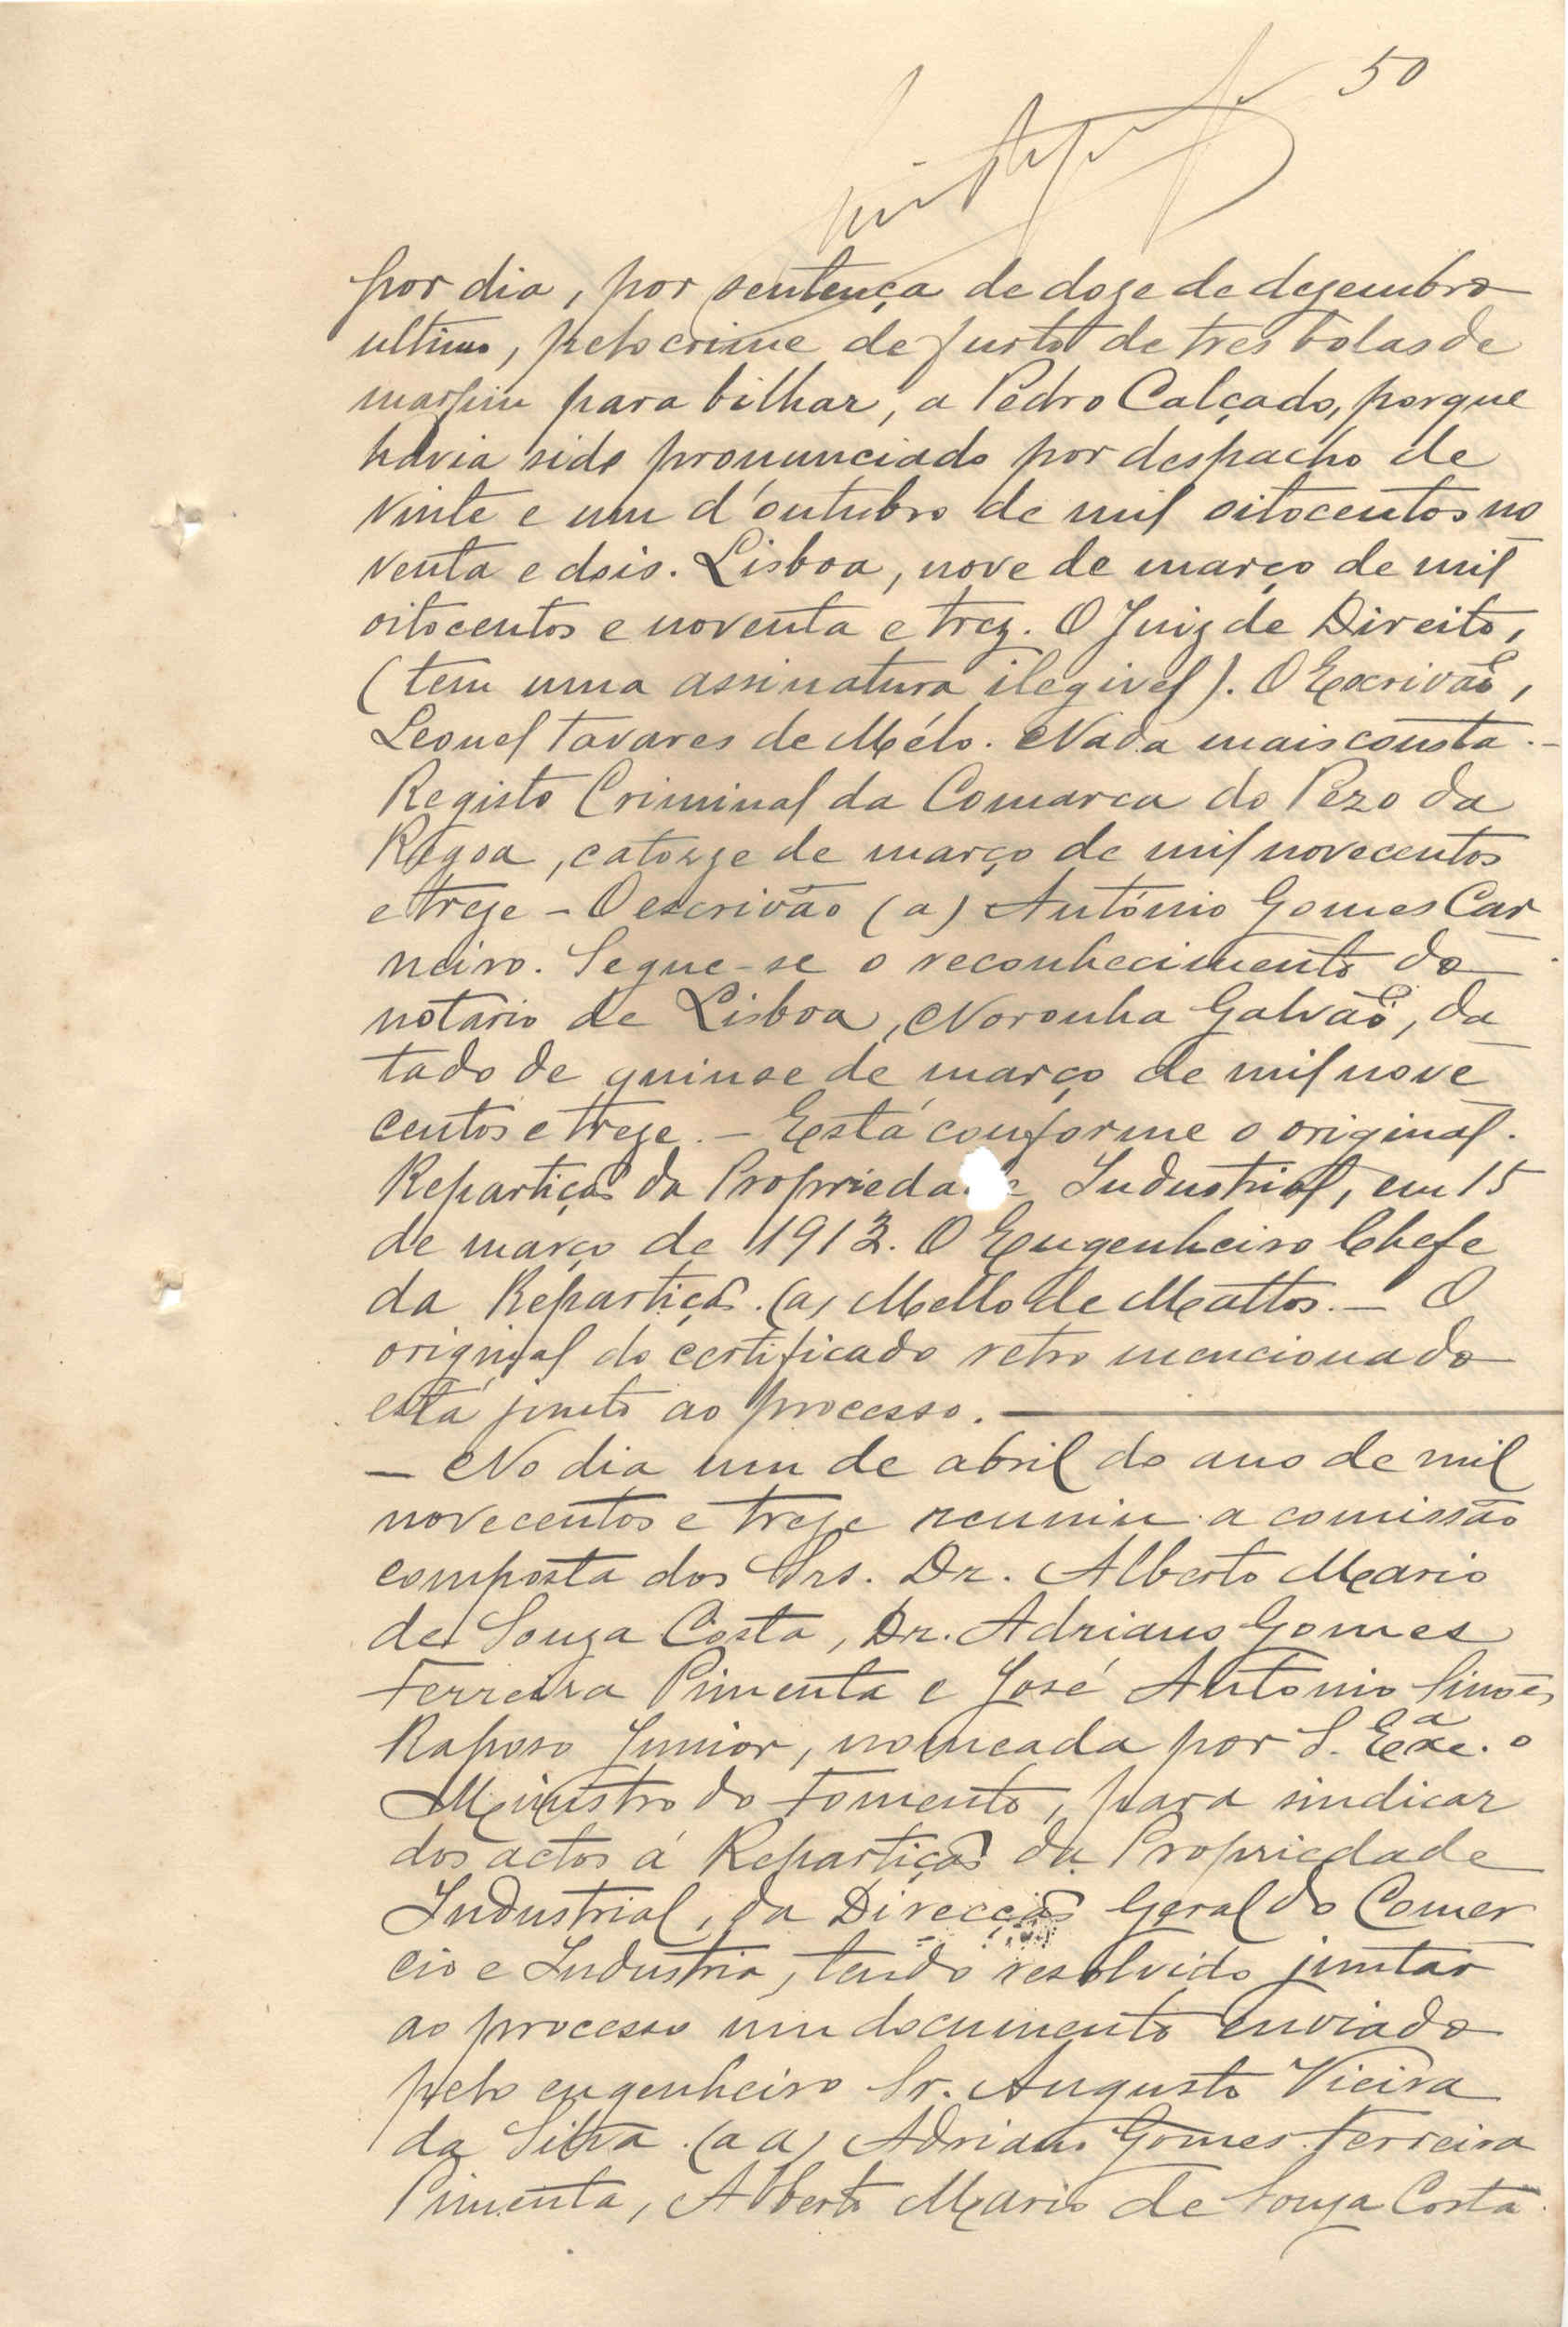 50
por dia, por sentença de doze de dezembro
ultimo, pelo crime de furto de tres bolas de
marfim para bilhar, a Pedro Calçado, porque
havia sido pronunciado por despacho de
vinte e um d'outubro de mil oitocentos no
venta e dois. Lisboa, nove de março de mil
oitocentos e noventa e trez. O Juiz de Direito,
(tem uma assinatura ilegivel). O Escrivão,
Leonel Tavares de Mélo. Nada mais consta.-
Registo Criminal da Comarca do Pezo da
Regoa, catorze de março de mil novecentos
e treze - O escrivão (a) António Gomes Car
neiro. Segue-se o reconhecimento do
notário de Lisboa, Noronha Galvão, da
tado de quinse de março de mil nove
centos e treze. - Está conforme o original.
Repartição da Propriedade Industrial, em 15
de março de 1913. O Engenheiro Chefe
da Repartição. (a) Mello de Mattos. - O
original do certificado retro mencionado
está junto ao processo.
- No dia um de abril do ano de mil
novecentos e treze reuniu a comissão
composta dos Srs. Dr. Alberto Mario
de Souza Costa, Dr. Adriano Gomes
Ferreira Pimenta e José António Simões
Raposo Junior, nomeada por S. Exc.ª o
Ministro do Fomento, para sindicar
dos actos á Repartição da Propriedade
Industrial, da Direcção Geral do Comer
cio e Industria, tendo resolvido juntar
ao processo um documento enviado
pelo engenheiro Sr. Augusto Vieira
da Silva. (a a) Adriano Gomes Ferreira
Pimenta, Alberto Mario de Souza Costa